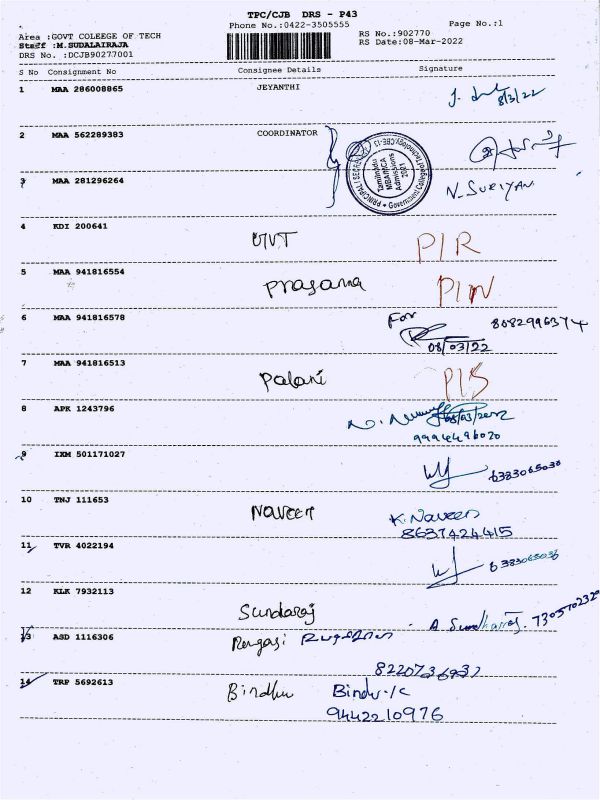 TPC/CJB DRS - P43
Phone No.:0422-3505555 Page No.:1
Area :GOVT COLEEGE OF TECH RS No.:902770
Staff :M.SUDALAIRAJA RS Date:08-Mar-2022
DRS No. :DCJB90277001
S No Consignment No Consignee Details Signature
1 MAA 286008865 JEYANTHI 8/3/22
2 MAA 562289383 COORDINATOR
Tamilnadu MBA/MCA Admissions 2021
Government College of Technology, CBE-13
3 MAA 281296264 N. SURIYAN
4 KDI 200641 P/R
5 MAA 941816554 Prasanna P/N
6 MAA 941816578 For 8082996374
08/03/22
7 MAA 941816513 Palani P/S
8 APK 1243796
9994496020
9 IXM 501171027 6383065036
10 TNJ 111653 Naveen K. Naveen
8637424415
11 TVR 4022194 6383065036
12 KLK 7932113
Sundaraj
13 ASD 1116306 Rengasi
8220736937
14 TRP 5692613 Bindhu Bindu
9442210976